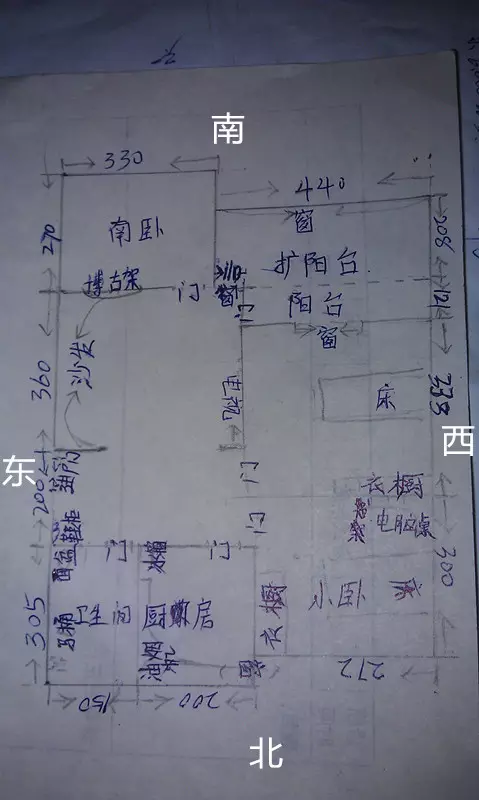 南
330
440
窗
208
270
南卧
扩阳台
博古架
门
110
窗
门
阳台
窗
121
360
沙发
电视
床
338
东
西
200
门
门
衣橱
电脑桌
鞋柜
门
冰箱
门
300
305
马桶
卫生间
厨房
衣橱
小卧
油烟机
窗
272
150
200
北